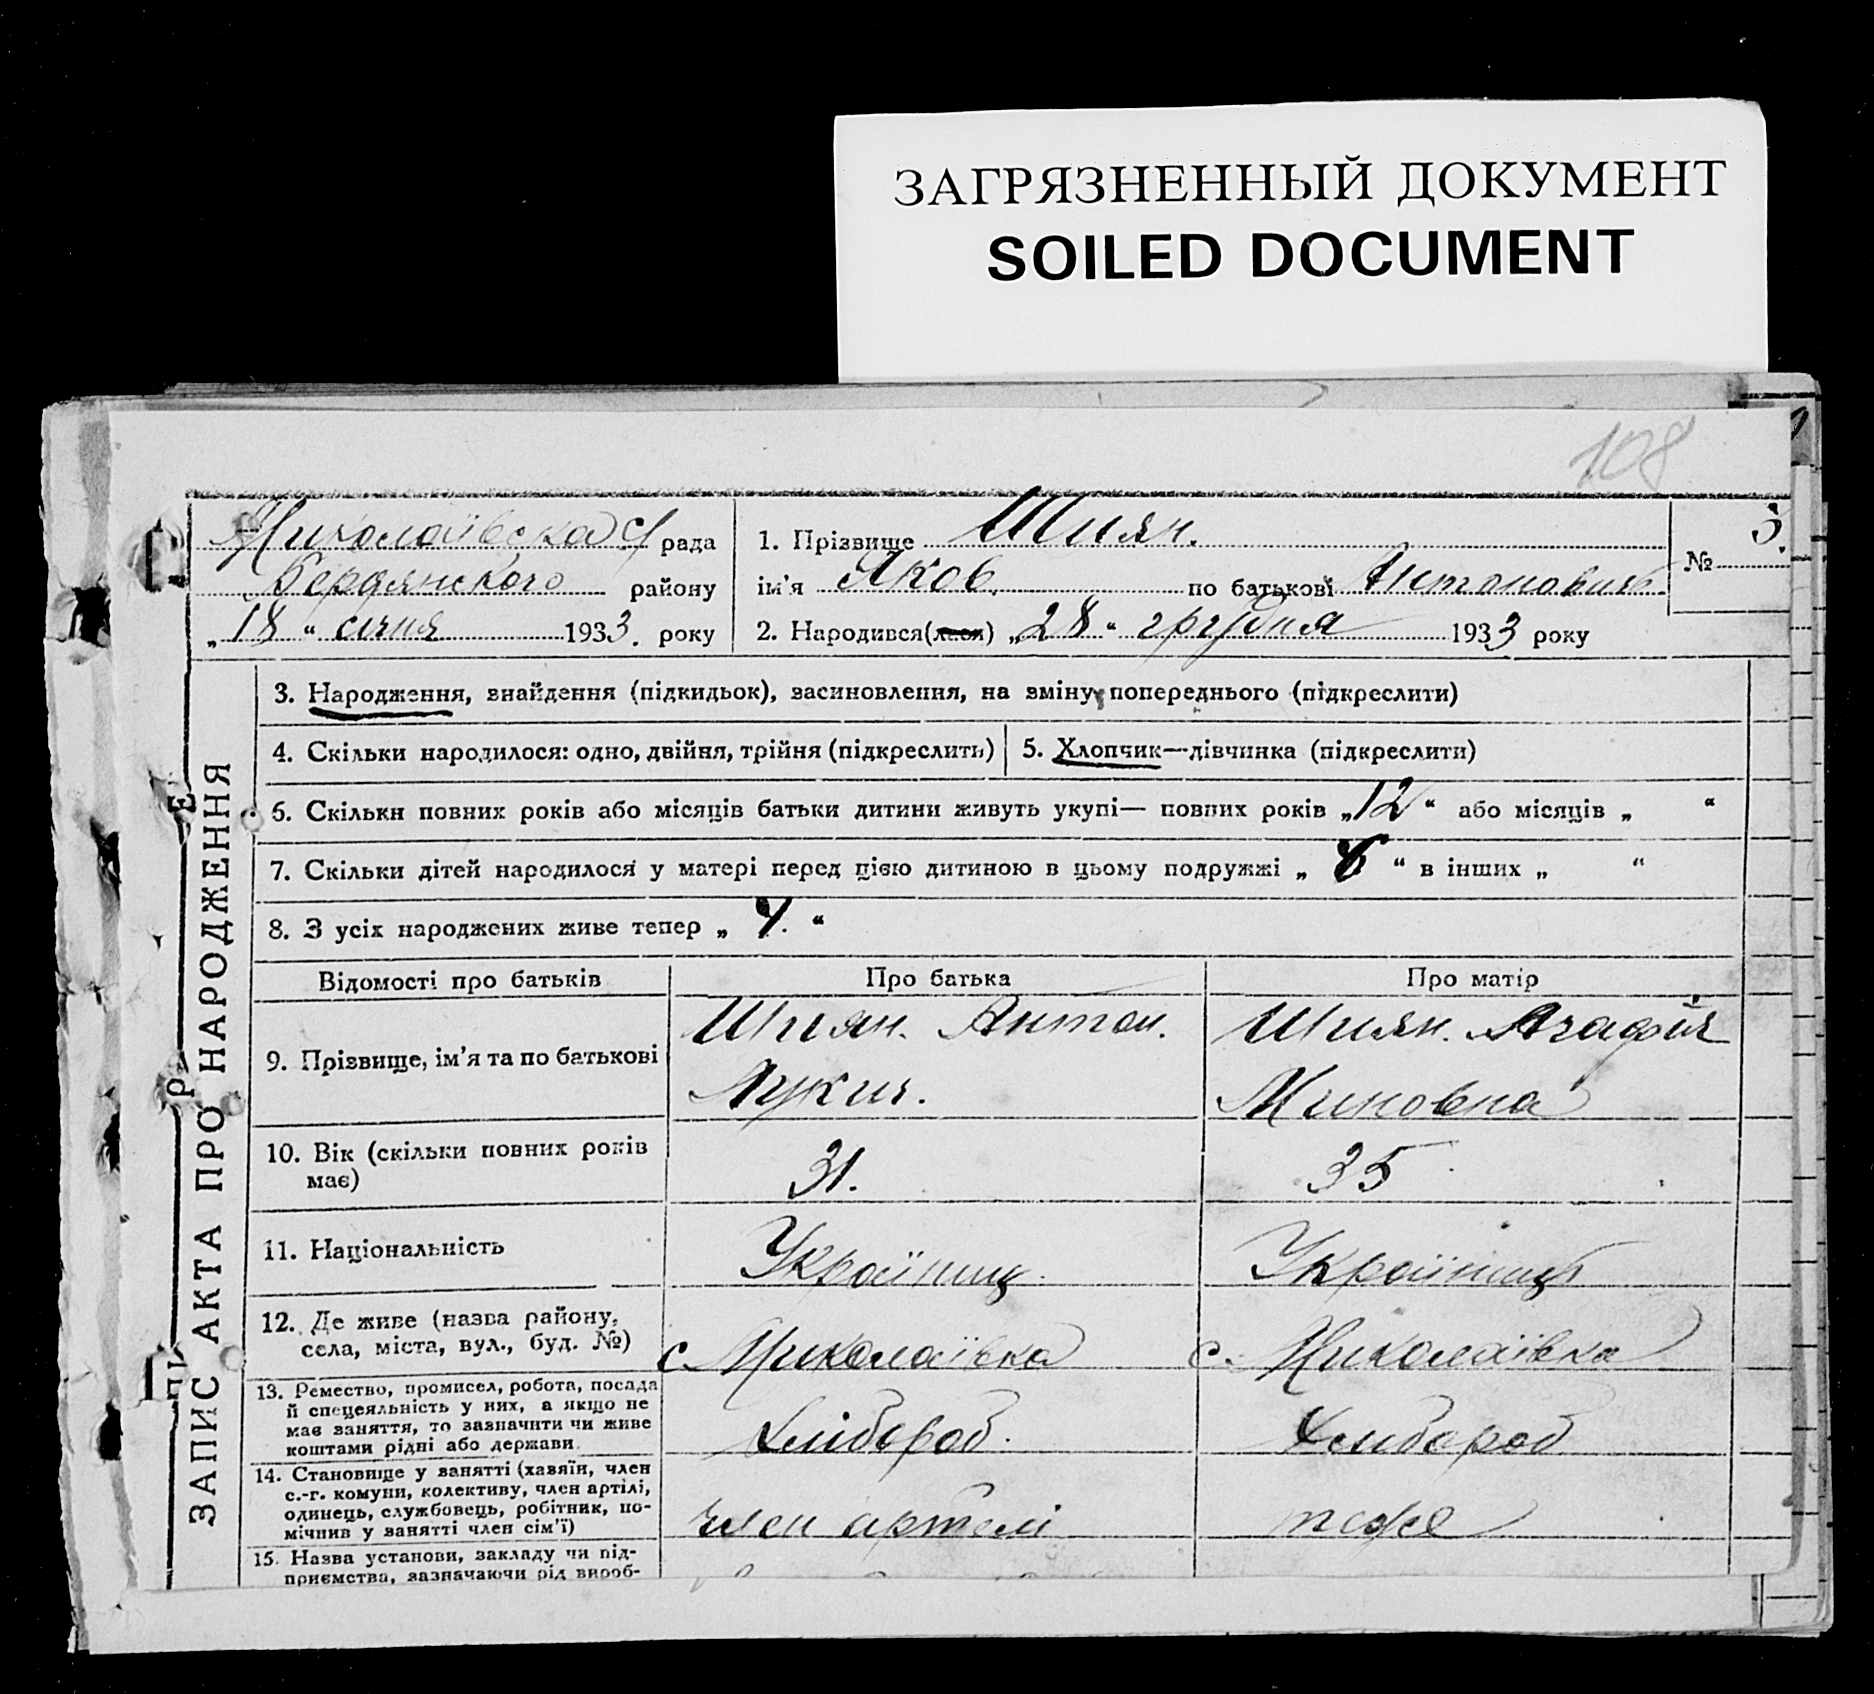 ЗАГРЯЗНЕННЫЙ ДОКУМЕНТ
SOILED DOCUMENT
108
Николаївська с/рада
Бердянського району
„18“ січня 1933. року
1. Прізвище Шиян.
ім'я Яков. по батькові Антонович
№ 3.
2. Народився(лася) „28“ грудня 1933 року
ЗАПИС АКТА ПРО НАРОДЖЕННЯ
3. Народження, знайдення (підкидьок), засиновлення, на зміну попереднього (підкреслити)
4. Скільки народилося: одно, двійня, трійня (підкреслить)
5. Хлопчик—дівчинка (підкреслити)
6. Скільки повних років або місяців батьки дитини живуть укупі— повних років „12“ або місяців „ “
7. Скільки дітей народилося у матері перед цією дитиною в цьому подружжі „6“ в інших „ “
8. З усіх народжених живе тепер „4.“
Відомості про батьків Про батька Про матір
9. Прізвище, ім'я та по батькові
Шиян. Антон.
Лукич.
Шиян. Агафія
Миновна
10. Вік (скільки повних років
має)
31.
35
11. Національність
Україниц
Україниць
12. Де живе (назва району,
села, міста, вул., буд. №)
с. Николаївка
с. Николаївка
13. Ремество, промисел, робота, посада
й спецеяльність у них, а якщо не
має заняття, то зазначити чи живе
коштами рідні або держави
Хлібороб.
Хлибороб
14. Становище у занятті (хазяїн, член
с.-г. комуни, колективу, член артілі,
одинець, службовець, робітник, по-
мічнив у занятті член сім'ї)
член артелі
тоже
15. Назва установи, закладу чи під-
приємства, зазначаючи рід вироб-